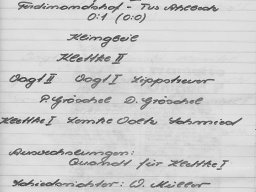 Ferdinandshof - Tus Ahlbeck
0:1 (0:0)
Klingbeil
Klettke II
Vogt II Vogt I Lippstreuer
P. Gröschel D. Gröschel
Klettke I Lemke Voelz Schmied
Auswechslungen:
Quandt für Klettke I
Schiedsrichter: O. Müller